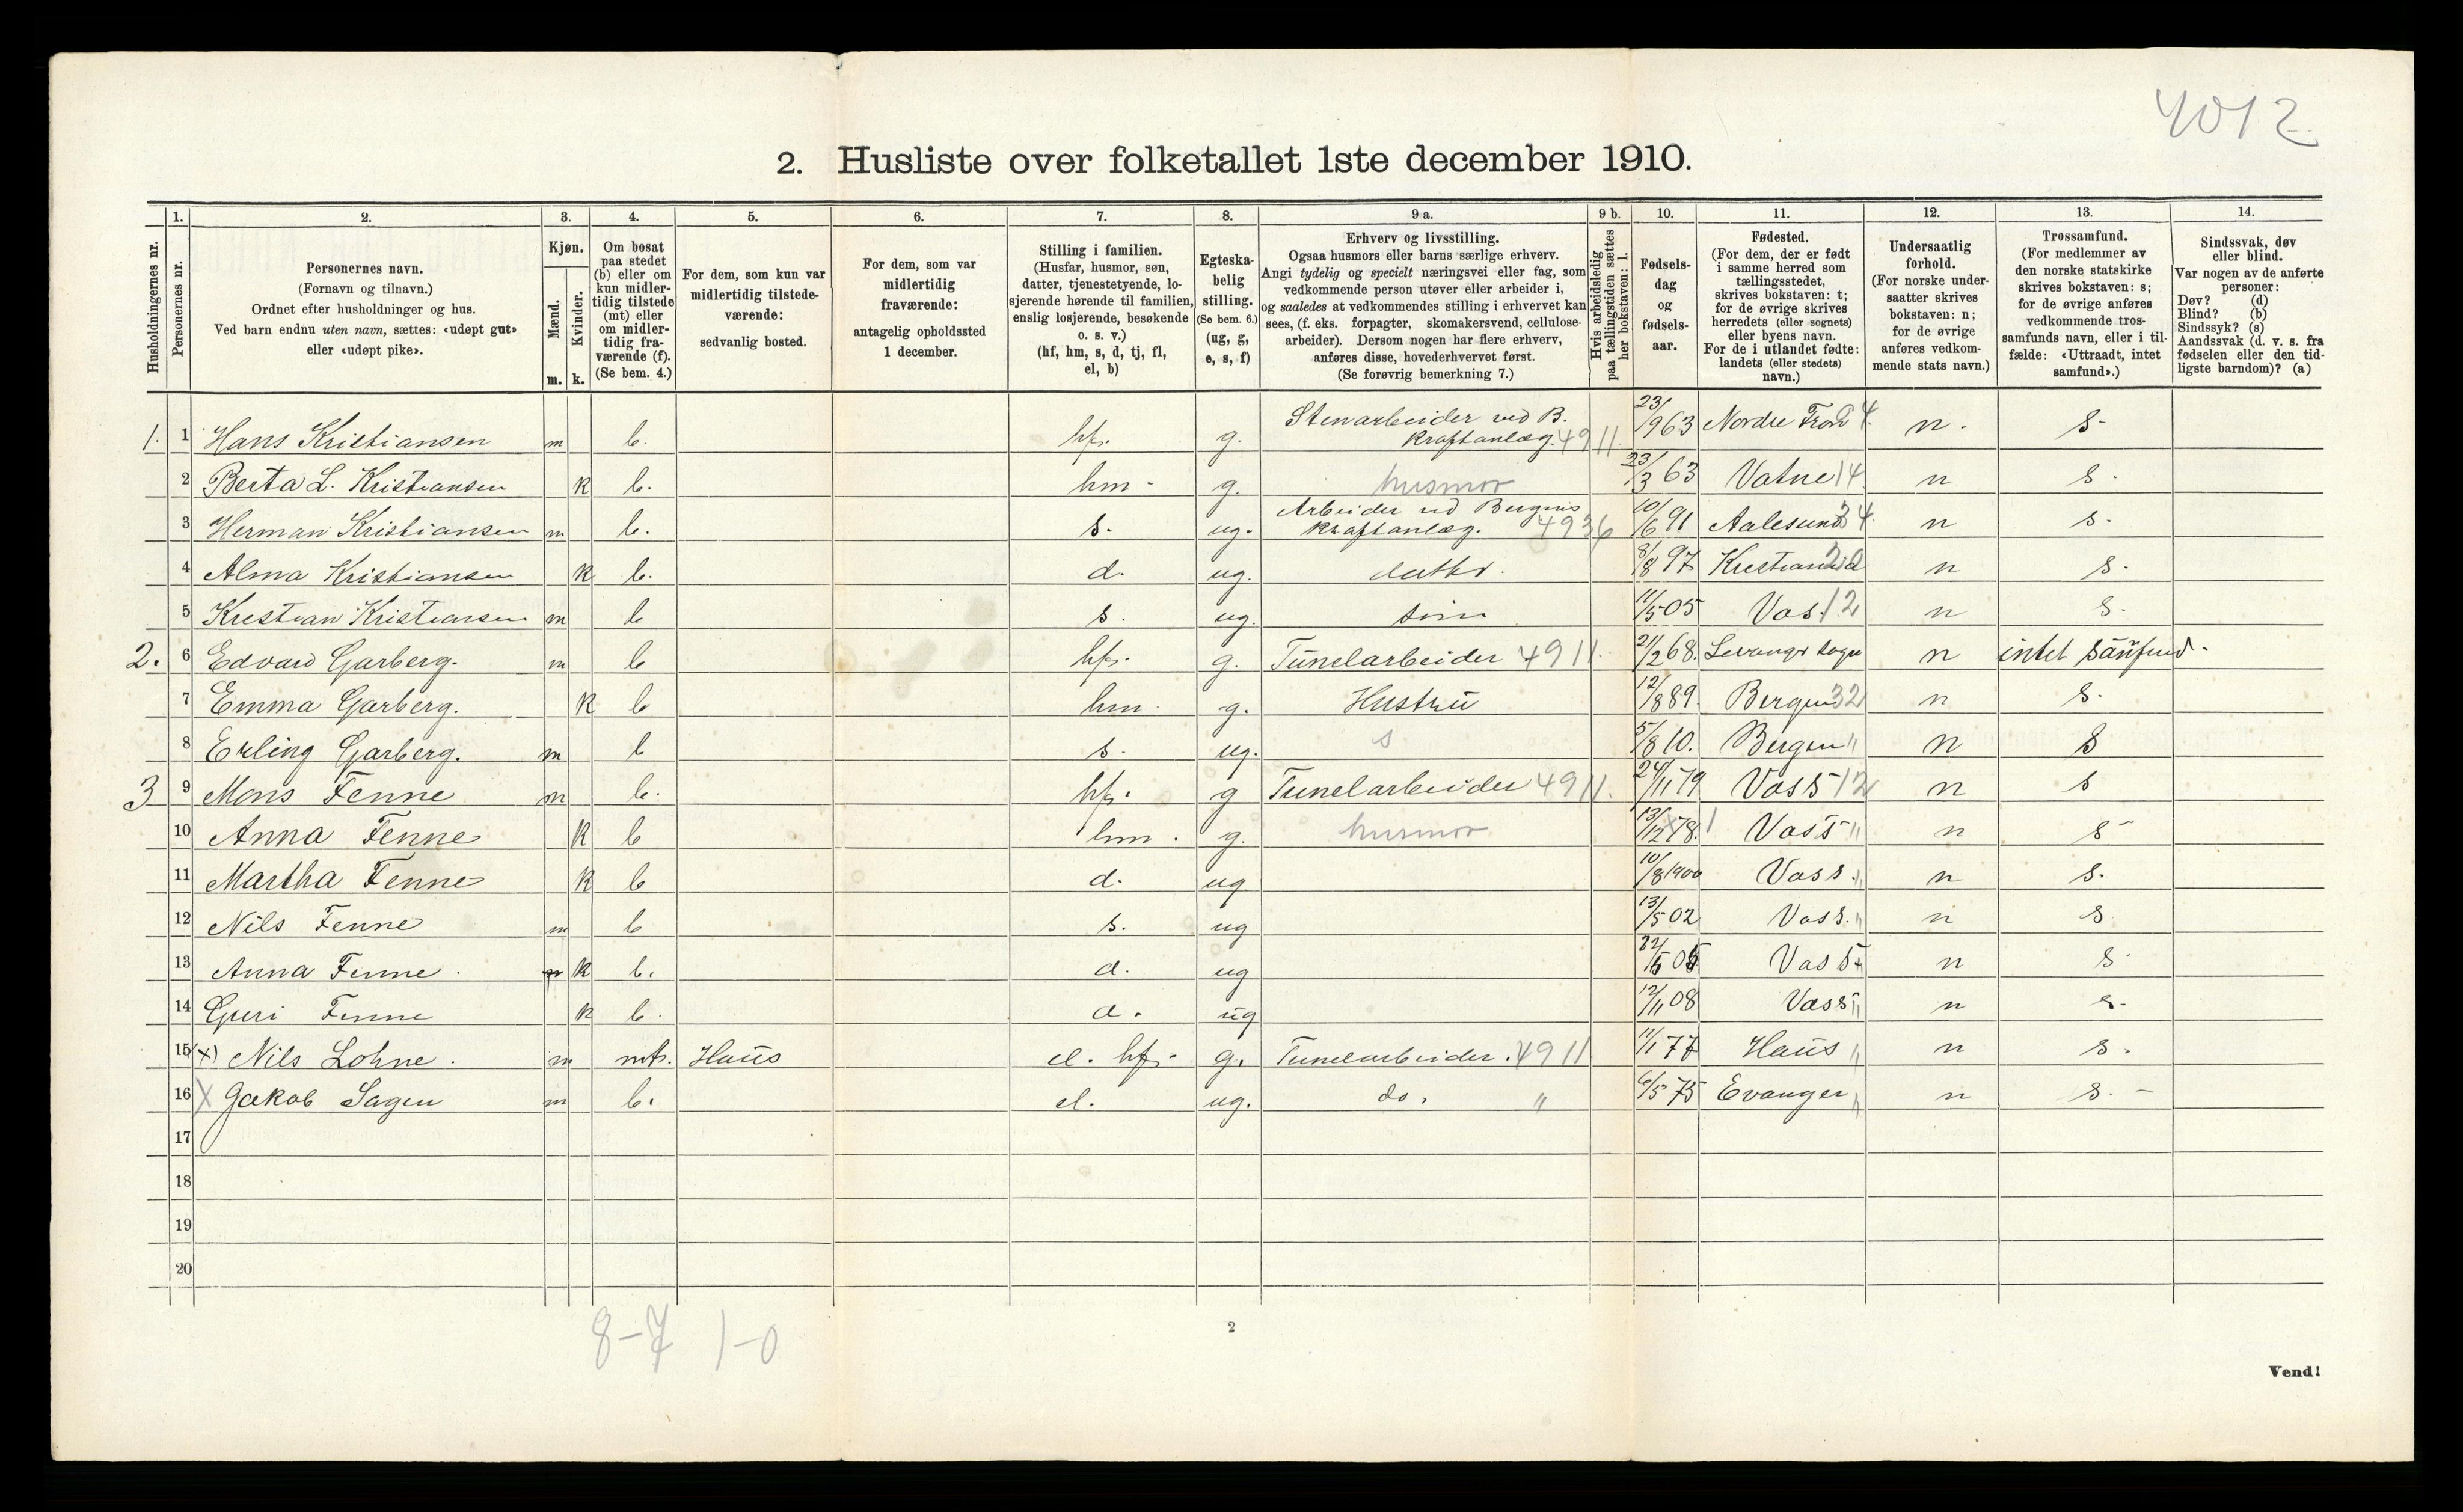 4012
2. Husliste over folketallet 1ste december 1910.
1. 2. 3. 4. 5. 6. 7. 8. 9 a. 9 b. 10. 11. 12. 13. 14.
Husholdningernes nr.
Personernes nr.
Personernes navn.
(Fornavn og tilnavn.)
Ordnet efter husholdninger og hus.
Ved barn endnu uten navn, sættes: «udøpt gut»
eller «udøpt pike».
Kjøn.
Mænd.
Kvinder.
m. k.
Om bosat
paa stedet
(b) eller om
kun midler-
tidig tilstede
(mt) eller
om midler-
tidig fra-
værende (f).
(Se bem. 4.)
For dem, som kun var
midlertidig tilstede-
værende:
sedvanlig bosted.
For dem, som var
midlertidig
fraværende:
antagelig opholdssted
1 december.
Stilling i familien.
(Husfar, husmor, søn,
datter, tjenestetyende, lo-
sjerende hørende til familien,
enslig losjerende, besøkende
o. s. v.)
(hf, hm, s, d, tj, fl,
el, b)
Egteska-
belig
stilling.
(Se bem. 6.)
(ug, g,
e, s, f)
Erhverv og livsstilling.
Ogsaa husmors eller barns særlige erhverv.
Angi tydelig og specielt næringsvei eller fag, som
vedkommende person utøver eller arbeider i,
og saaledes at vedkommendes stilling i erhvervet kan
sees, (f. eks. forpagter, skomakersvend, cellulose-
arbeider). Dersom nogen har flere erhverv,
anføres disse, hovederhvervet først.
(Se forøvrig bemerkning 7.)
Hvis arbeidsledig
paa tællingstiden sættes
her bokstaven: l.
Fødsels-
dag
og
fødsels-
aar.
Fødested.
(For dem, der er født
i samme herred som
tællingsstedet,
skrives bokstaven: t;
for de øvrige skrives
herredets (eller sognets)
eller byens navn.
For de i utlandet fødte:
landets (eller stedets)
navn.)
Undersaatlig
forhold.
(For norske under-
saatter skrives
bokstaven: n;
for de øvrige
anføres vedkom-
mende stats navn.)
Trossamfund.
(For medlemmer av
den norske statskirke
skrives bokstaven: s;
for de øvrige anføres
vedkommende tros-
samfunds navn, eller i til-
fælde: «Uttraadt, intet
samfund».)
Sindssvak, døv
eller blind.
Var nogen av de anførte
personer:
Døv? (d)
Blind? (b)
Sindssyk? (s)
Aandssvak (d. v. s. fra
fødselen eller den tid-
ligste barndom)? (a)
1. 1 Hans Kristiansen m b. hf. g. Stenarbeider ved B. Kraftanlæg. 4911 23/9 63 Nordre n. s.
2 Berta L. Kristiansen k b. hm g. husmor 23/3 63 Vatne 14 n s.
3 Herman Kristiansen m b. s. ug. Arbeider ved Bergens Kraftanlæg. 4936 10/6 91 Aalesund 34 n s.
4 Alma Kristiansen k b. d. ug. 8/8 97 n s.
5 Krestian Kristiansen m b s. ug. 11/5 05 Vos 12 n s.
2. 6 Edvard Garberg. m b hf. g. Tunelarbeider 4911. 21/2 68. Levanger sogn n intet samfund.
7 Emma Garberg. k b hm g. Hustru 12/8 89. Bergen 32 n s.
8 Erling Garberg. m b s. ug. s 5/8 10. Bergen " n s
3 9 Mons Fenne m b. hf. g Tunelarbeider 4911. 24/11 79 Voss 12 n s
10 Anna Fenne k b hm. g. husmor 13/12 78. Voss " n s
11 Martha Fenne k b d. ug 10/8 1900 Voss " n s.
12 Nils Fenne m b s. ug 13/5 02 Voss. " n s
13 Anna Fenne. k b. d. ug Voss " n s
14 Guri Fenne k b. d. ug 12/11 08 Voss " n s.
15 x) Nils Lohne. m mt. Haus el. hf. g. Tunelarbeider. 4911 11/1 77 Haus " n s.
16 X Jakob Sagen m b. el. ug. do. " 6/5 75 Evanger " n s. –
17
18
19
20
8-7 1-0
2
Vend!